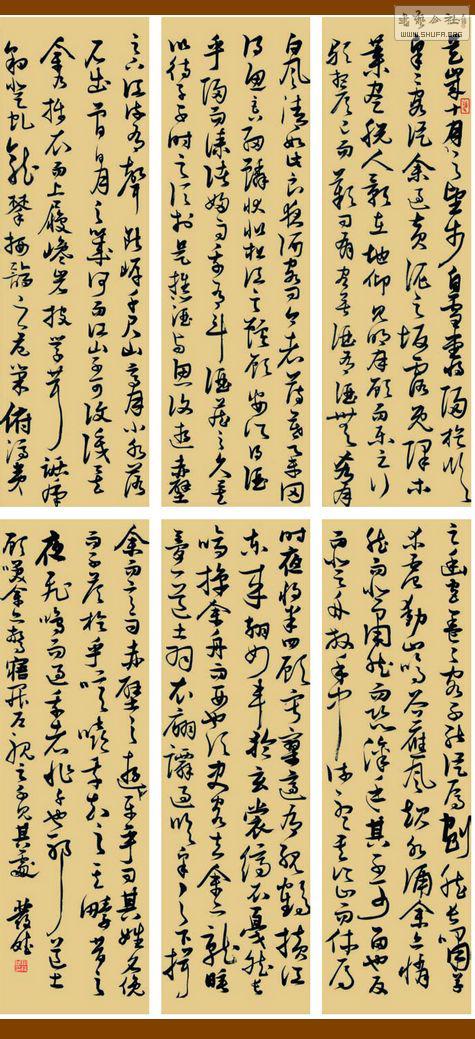 書藝公社
WWW.SHUFA.ORG
是歲十月之望步自雪堂將歸於臨
皋二客從余過黃泥之坂霜露既降木
葉盡脫人影在地仰見明月顧而樂之行
歌相答已而歎曰有客無酒有酒無肴月
白風清如此良夜何客曰今者薄暮舉網
得魚巨口細鱗狀似松江之鱸顧安所得酒
乎歸而謀諸婦婦曰我有斗酒藏之久矣
以待子不時之須於是攜酒與魚復遊赤壁
之下江流有聲斷岸千尺山高月小水落
石出曾日月之幾何而江山不可復識矣
余乃攝衣而上履巉岩披蒙茸踞虎
豹登虬龍攀栖鶻之危巢俯馮夷
之幽宮蓋二客不能從焉劃然長嘯草
木震動山鳴谷應風起水涌余亦悄
然而悲肅然而恐凜乎其不可留也反
而登舟放乎中流聽其所止而休焉
時夜將半四顧寂寥適有孤鶴橫江
東來翅如車輪玄裳縞衣戛然長
鳴掠余舟而西也須臾客去余亦就睡
夢一道士羽衣翩躚過臨皋之下揖
余而言曰赤壁之遊樂乎問其姓名俛
而不答嗚呼噫嘻我知之矣疇昔之
夜飛鳴而過我者非子也耶道士
顧笑余亦驚寤開戶視之不見其處